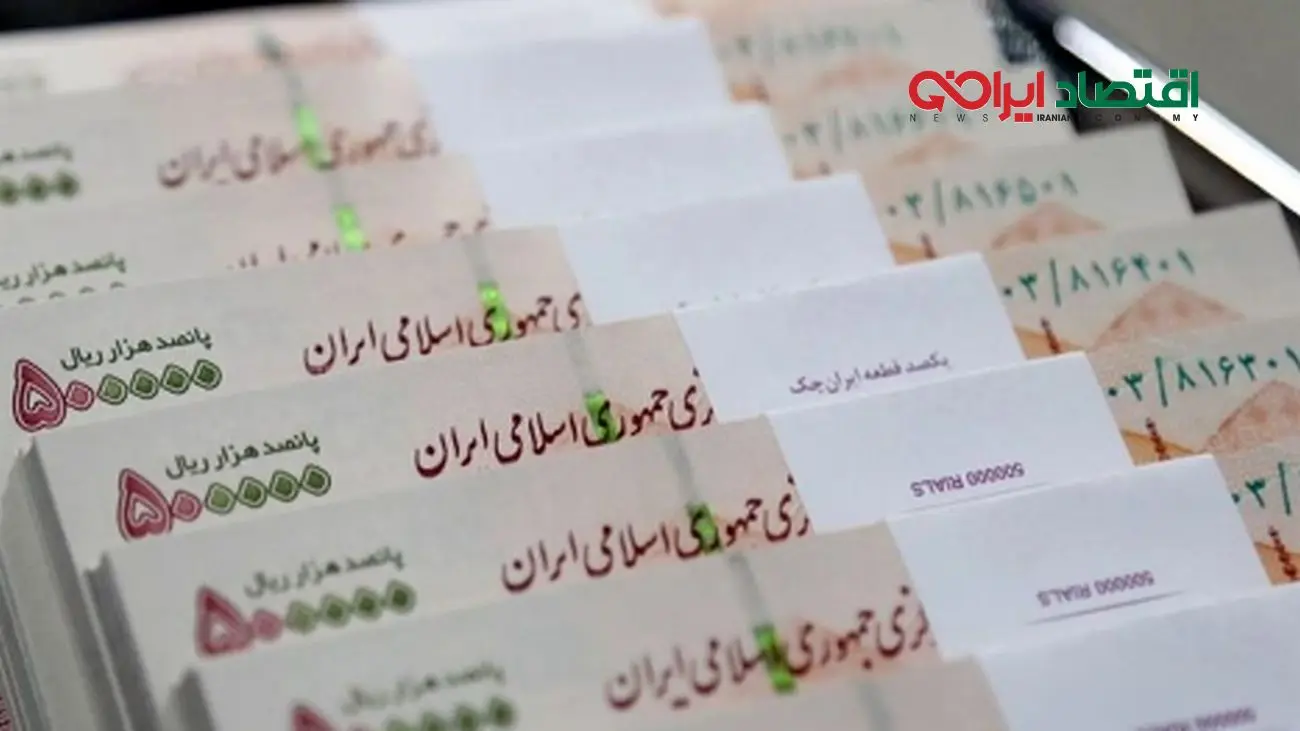 اقتصاد ایران
NEWS IRANIAN ECONOMY
پانصد هزار
جمهوری اسلامی ایران
پانصد هزار ریال
۰۳/۸۱۶۵۰۱
پانصد هزار ریال
۵۰۰۰۰۰
جمهوری اسلامی ایران
۰۳/۸۱۶۴۰۱
پانصد هزار ریال
۵۰۰۰۰۰
جمهوری اسلامی ایران
یکصد قطعه ایران چک
۰۳/۸۱۶۳۰۱
پانصد هزار ریال
۵۰۰۰۰۰
جمهوری اسلامی ایران
500000 RIALS
۰۳/
پانصد هزار ریال
جمهوری اسلامی ایران
500000 RIALS